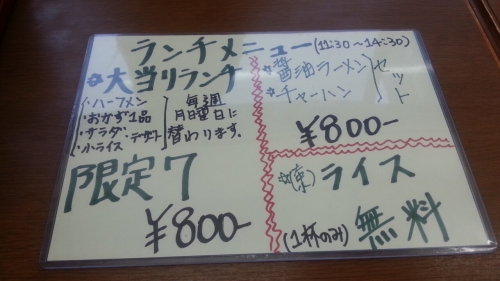 ランチメニュー(11:30～14:30)
☆大当りランチ
・ハーフメン
・おかず1品
・サラダ・デザート
・小ライス
毎週
月曜日に
替わります。
限定7
¥800-
☆醤油ラーメン
☆チャーハン
セット
¥800-
ライス
(1杯のみ)無料